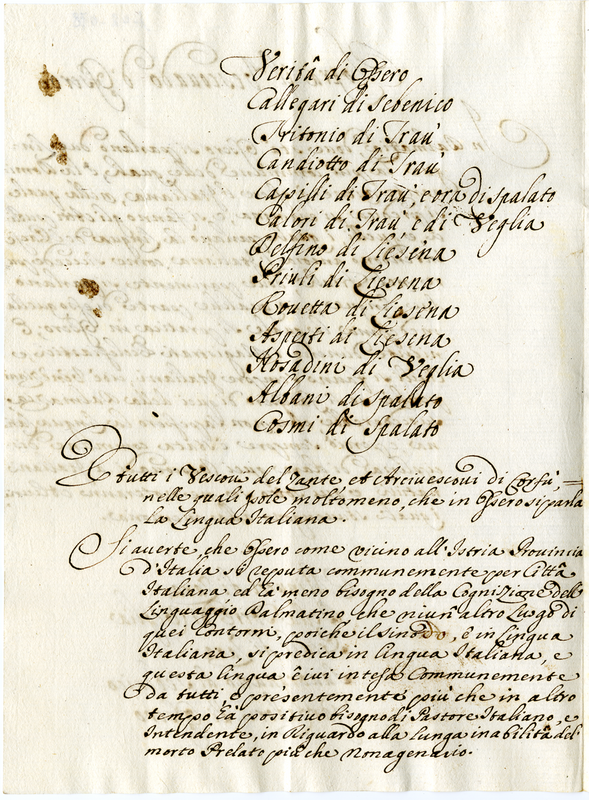 Verità di Ossero
Callegari di Sebenico
Tritonio di Traù
Candiotto di Traù
Capilli di Traù, e ora di spalato
Calori di Traù e di Veglia
Delfino di Liesena
Priuli di Liesena
Rovetta di Liesena
Asperti di Liesena
Rosadini di Veglia
Albani di Spalato
Cosmi di Spalato
E tutti i Vescovi del Zante, et Arcivescovi di Corfù, =
nelle quali Isole molto meno, che in Ossero si parla
La Lingua Italiana.
Si averte, che Ossero come vicino all'Istria Provincia
d'Italia si reputa communemente per Città
Italiana ed hà meno bisogno della Cognizione del
Linguaggio Dalmatino che niun'altro Luogo di
quei Contorni, poiche il sinodo, è in Lingua
Italiana, si predica in Lingua Italiana, e
questa lingua è ivi intesa Communemente
da tutti e presentemente più che in altro
tempo hà positivo bisogno di Pastore Italiano, e
Intendente, in Riguardo alla Lunga inabilità del
morto Prelato più che Nonagenario.